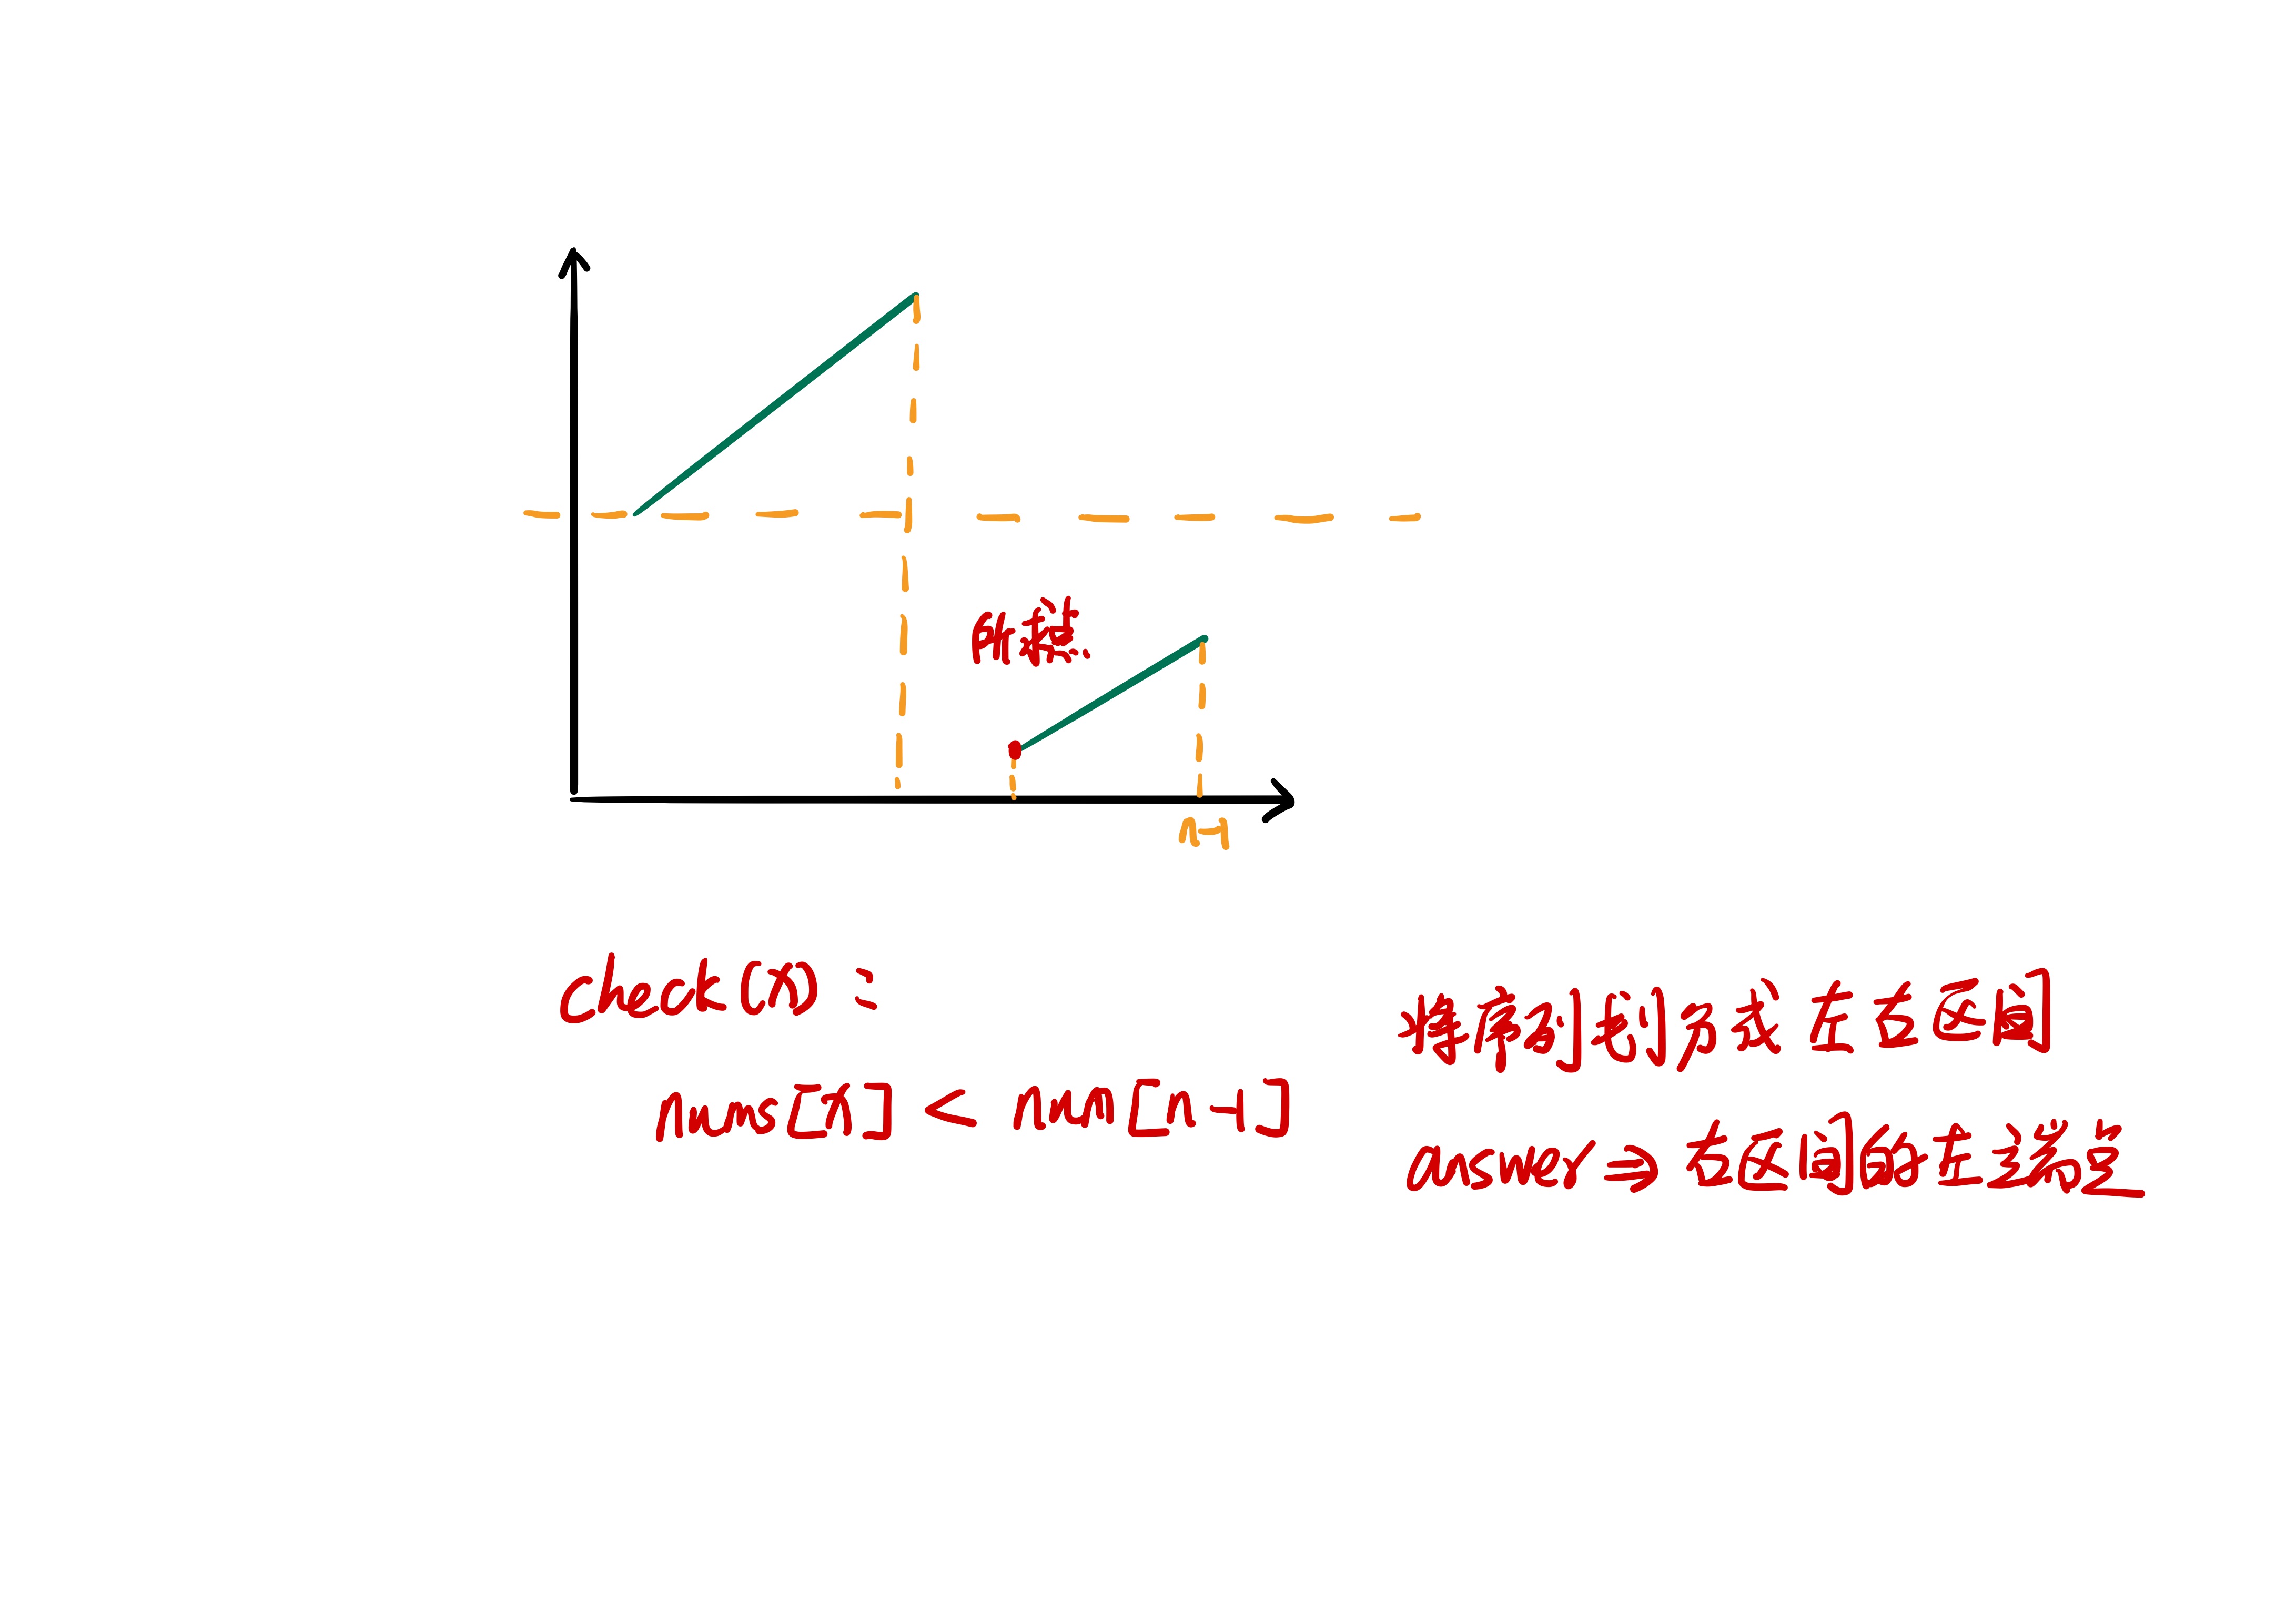 所求
n-1
check(x):
nums[x] < num[n-1]
将序列划分成左右区间
answer = 右区间的左端点